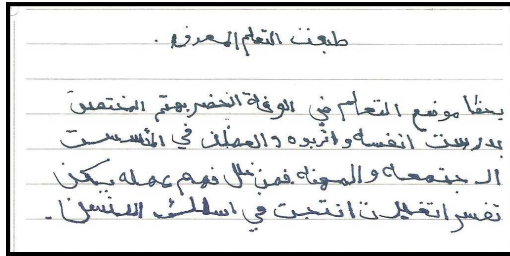 طبعت التعلم المعرفي .
يحظا موضع التعلم في الوقة الخضر بهتم المختصين
بدرست انفسه و اتربوه والعملن في المأسست
الـ جتمعاه و المهناه فمن خلل فهم عمله يمكن
تفسر اتغيلات انتجت في اسللك الانسن .